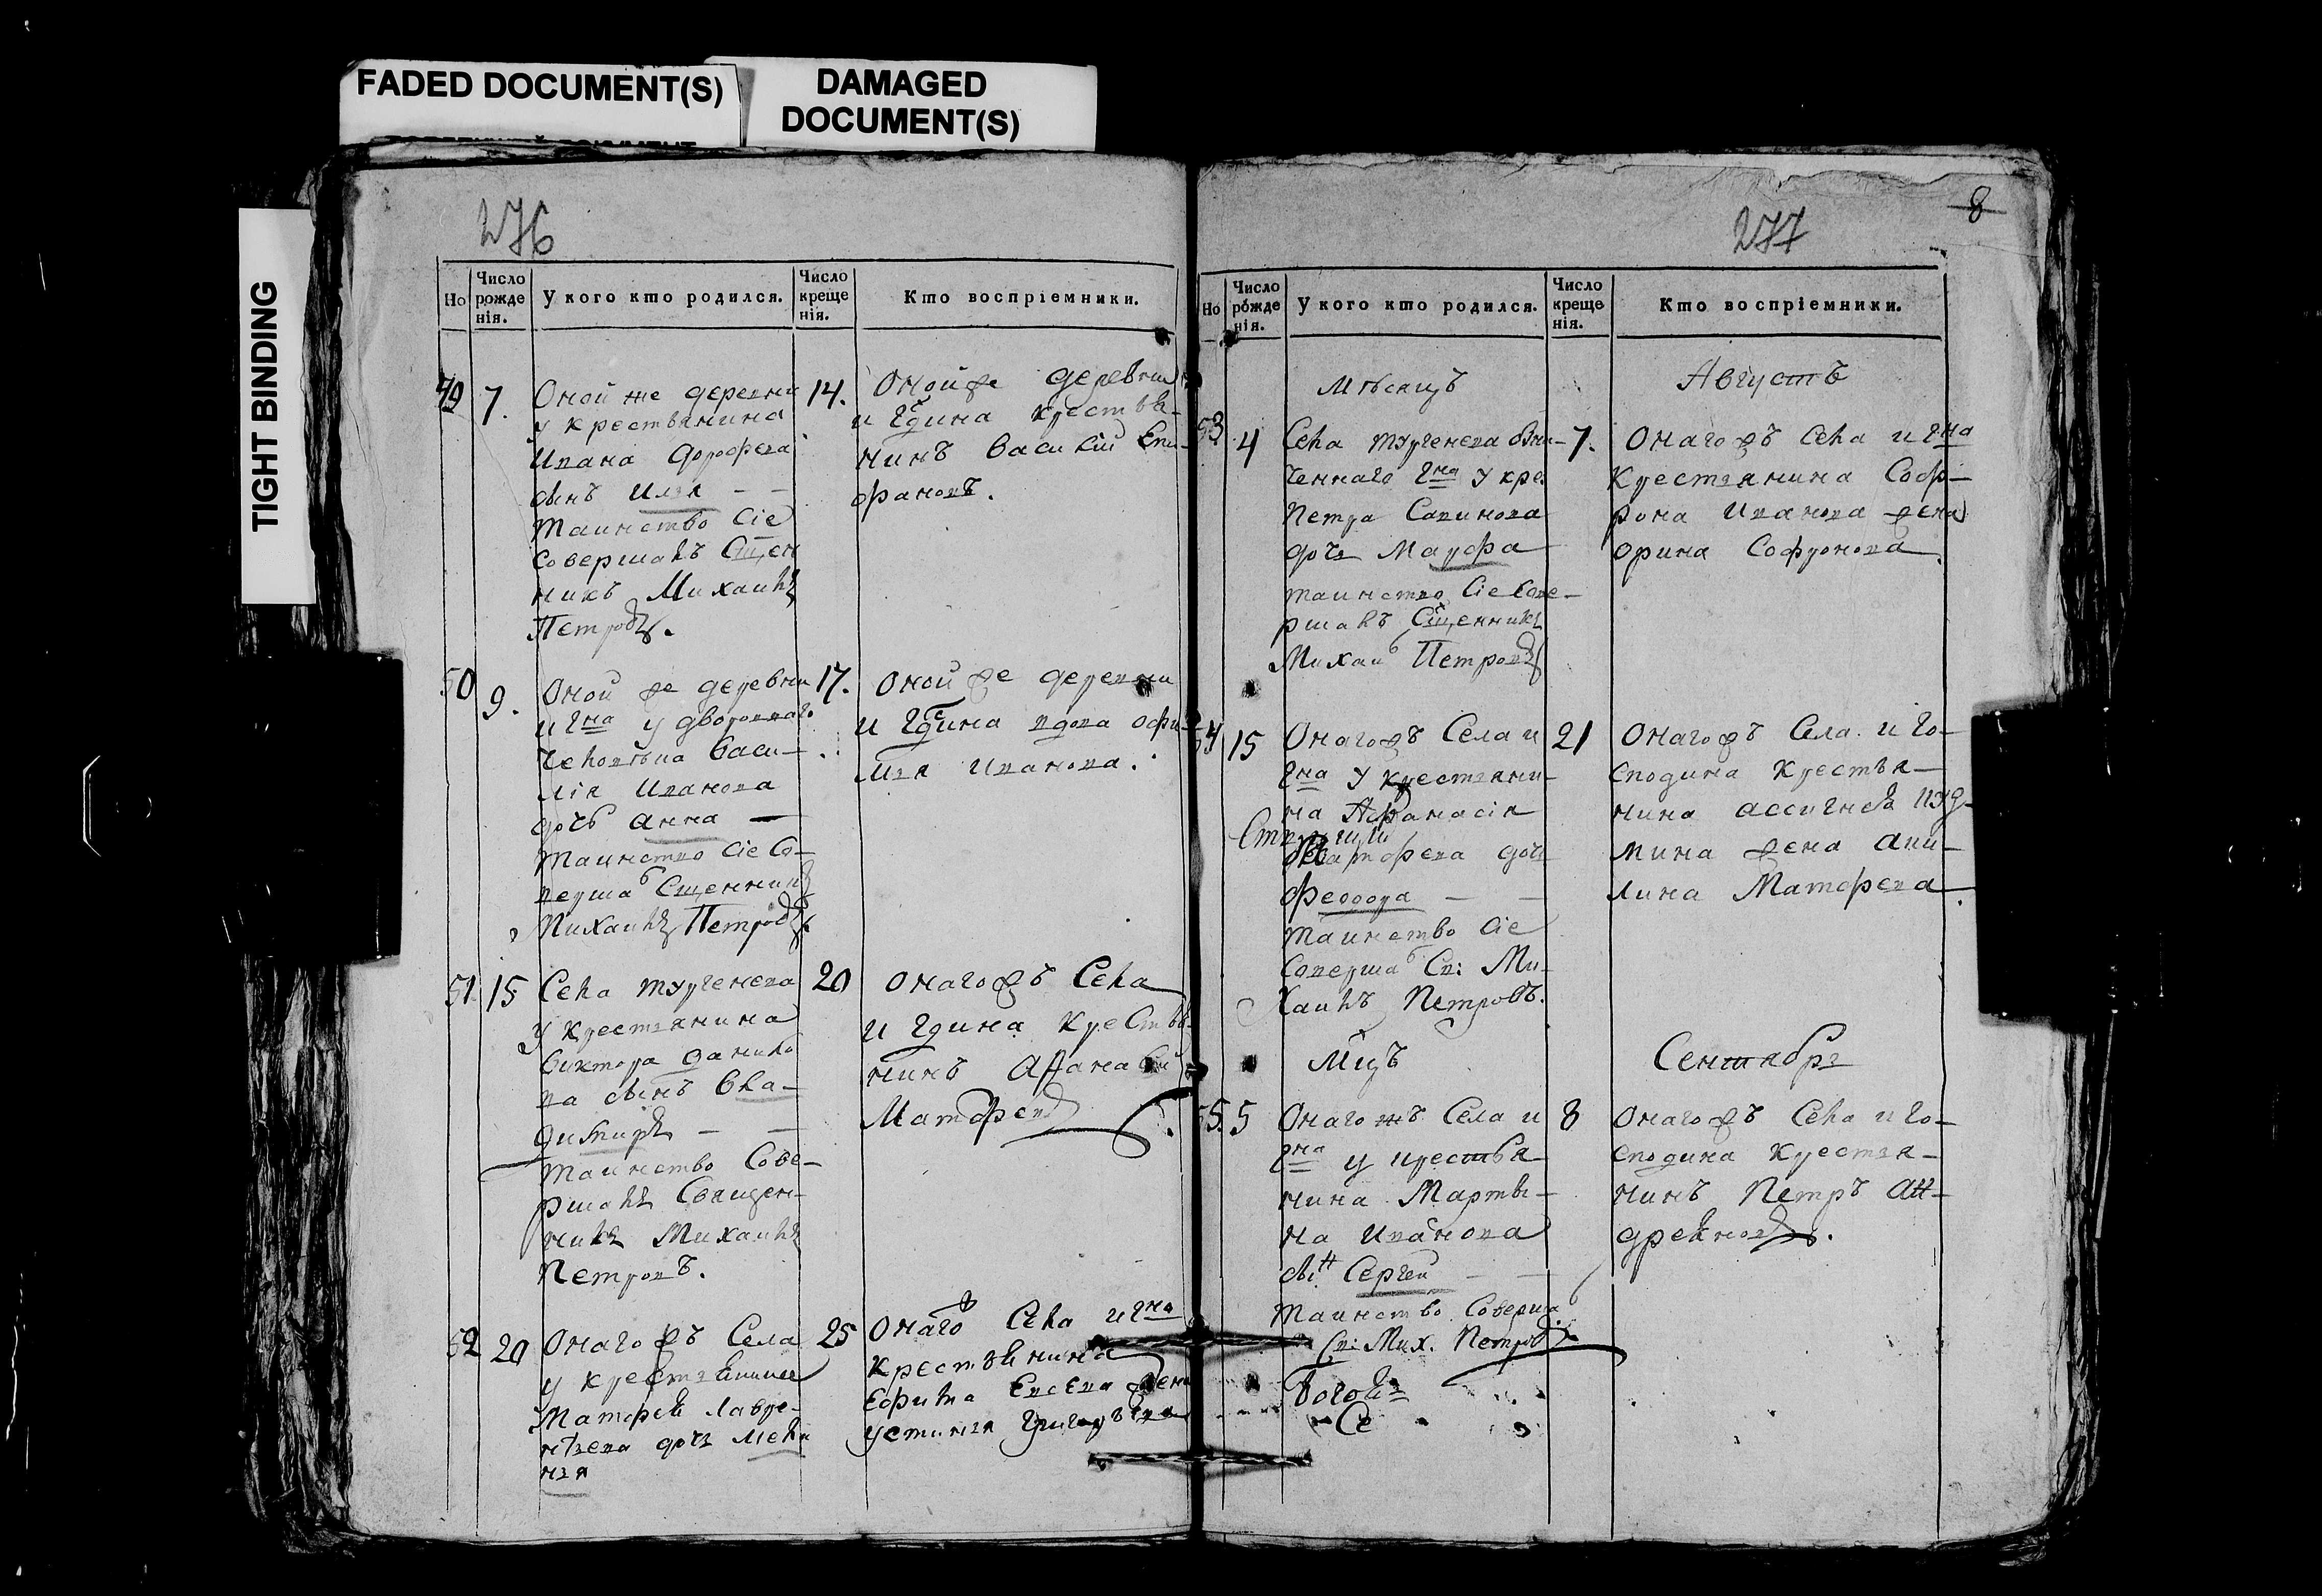 FADED DOCUMENT(S)
DAMAGED
DOCUMENT(S)
TIGHT BINDING
276
Но
Число
рожде
нія.
У кого кто родился.
Число
креще
нія.
Кто воспріемники.
49
7.
Оной же деревни
у крестьянина
Ивана Дорофеева
сынъ Илья
таинство сіе
совершалъ Сщен
никъ Михаилъ
Петровъ.
14.
Оной же деревни
и Гдина крестья-
нинъ Василій Епи-
фановъ.
50
9.
Оной же деревни
и гна у дворо́ваго
человѣка Васи-
лія Иванова
дочь Анна
таинство сіе Со-
верша Сщенникъ
Михаилъ Петровъ.
17.
Оной же деревни
и Гдина вдова Офи-
мья Иванова.
51
15
Села Тургенева
у крестьянина
Виктора Данило
ва сынъ Вла-
димиръ
таинство Сове-
ршалъ Священ-
никъ Михаилъ
Петровъ.
20
Онагожъ Села
и Гдина Крестья-
нинъ Афанасій
Матфеевъ.
52
20
Онагожъ Села
у крестьянина
Матфея Лавре-
нтьева дочь Мела
нья
25
Онаго ж Села и гна
крестьянина
Ефима Евсева жена
Устинья Григорьева
8
277
Но
Число
рожде
нія.
У кого кто родился.
Число
креще
нія.
Кто воспріемники.
Мѣсяцъ
Августъ
53
4
Села Тургенева
ченнаго Гна у кре
Петра Савинова
дочь Марфа
таинство сіе Сове-
ршалъ Сщенникъ
Михаи Петровъ
7.
Онагожъ Села и гна
Крестьянина Соф-
рона Иванова жена
Орина Софронова
54
15
Онагожъ Села и
гна у крестьяни-
на Афанасія
Матфева дочь
Феодора
таинство сіе
Соверша Св: Ми-
хаилъ Петровъ.
21
Онагожъ Села и Го-
сподина Крестья-
нина
мина жена Аки-
лина Матфева.
Мцъ
Сентябрь
55.
5
Онагожъ Села и
гна у крестья-
нина Марты-
на Иванова
сынъ Сергей
таинство Соверша
Св: Мих. Петровъ
8
Онагожъ Села и Го-
сподина Крестья-
нинъ Петръ Ан-
дреяновъ.
Се